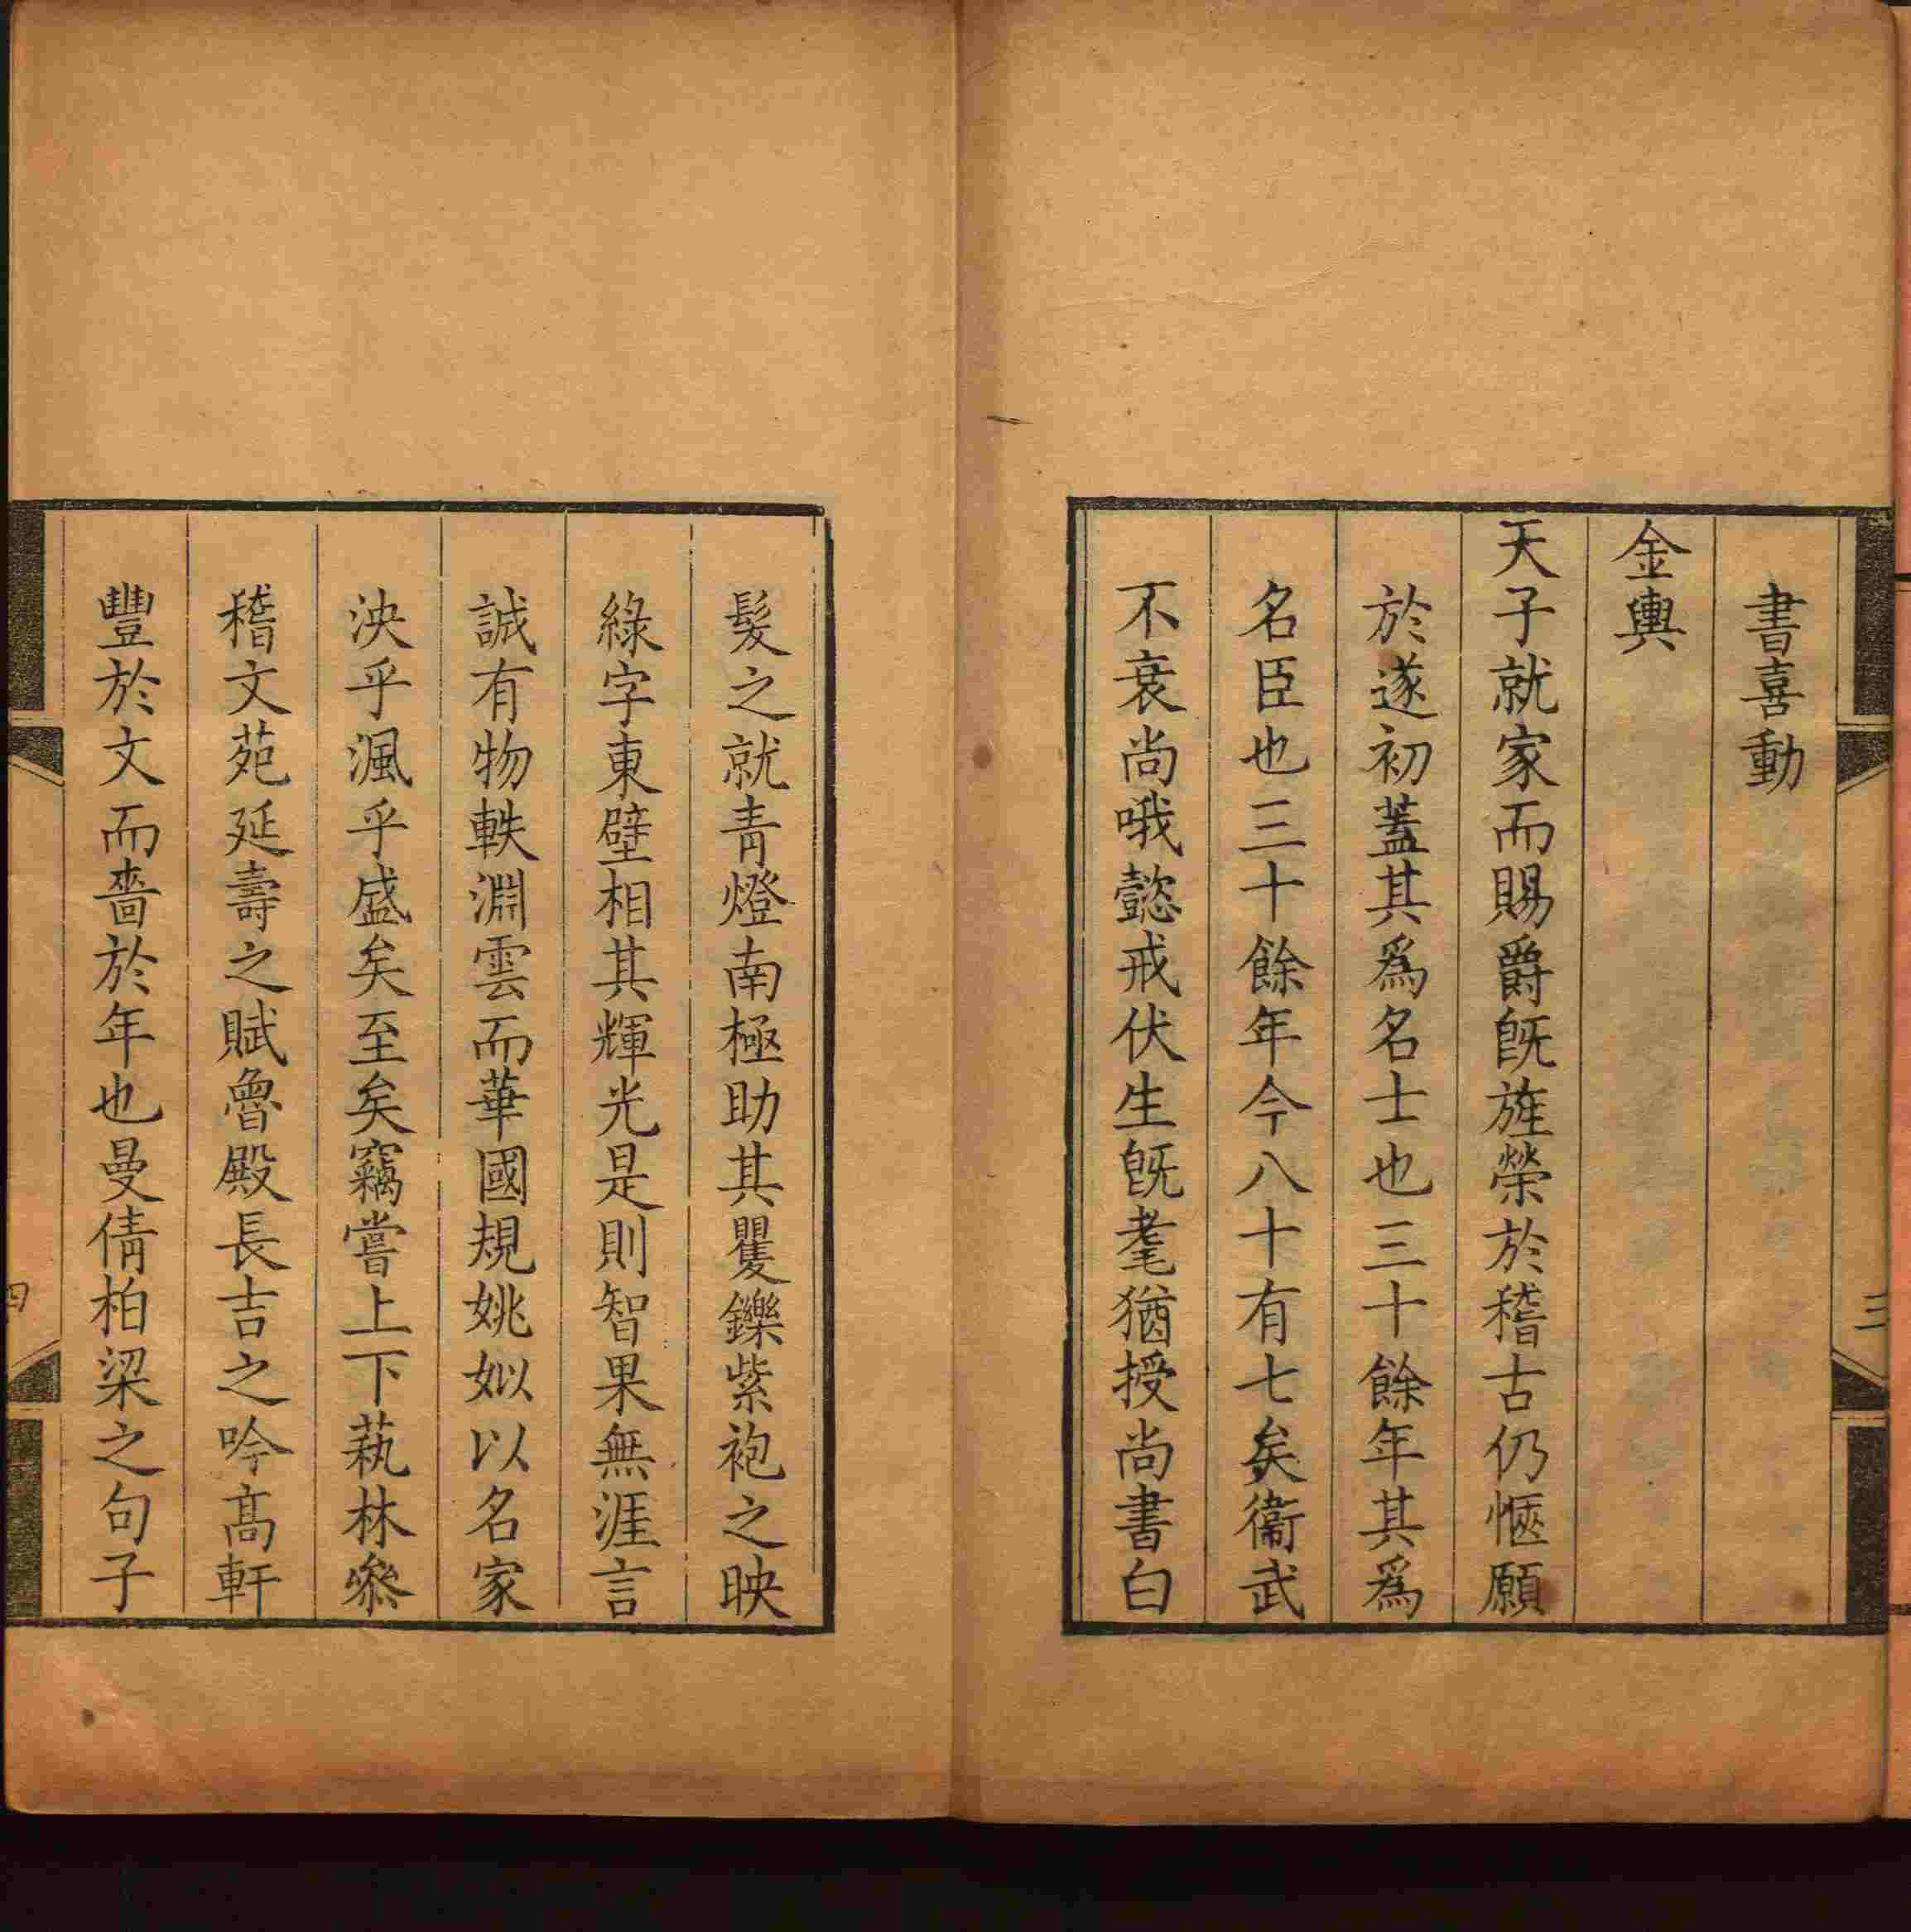 書喜動
金輿
天子就家而賜爵旣旌榮於稽古仍愜願
於遂初蓋其爲名士也三十餘年其爲
名臣也三十餘年今八十有七矣衞武
不衰尚哦懿戒伏生旣耄猶授尚書白
三
髮之就青燈南極助其矍鑠紫袍之映
綠字東壁相其輝光是則智果無涯言
誠有物軼淵雲而華國規姚姒以名家
泱乎渢乎盛矣至矣竊嘗上下蓺林叅
稽文苑延壽之賦魯殿長吉之吟高軒
豐於文而嗇於年也曼倩柏梁之句子
四